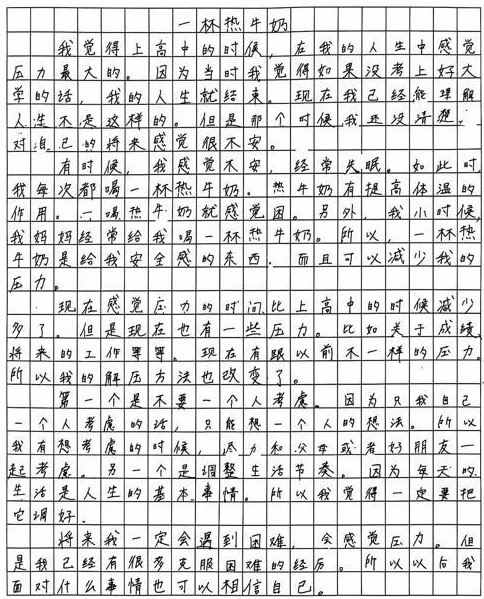 一杯热牛奶
我觉得上高中的时候，在我的人生中感觉
压力最大的。因为当时我觉得如果没考上好大
学的话，我的人生就结束。现在我已经能理解
人生不是这样的。但是那个时候我还没清楚，
对自己的将来感觉很不安。
有时候，我感觉不安，经常失眠。如此时，
我每次都喝一杯热牛奶。热牛奶有提高体温的
作用。一喝热牛奶就感觉困。另外，我小时候，
我妈妈经常给我喝一杯热牛奶。所以，一杯热
牛奶是给我安全感的东西，而且可以减少我的
压力。
现在感觉压力的时间比上高中的时候减少
多了。但是现在也有一些压力。比如关于成绩，
将来的工作等等。现在有跟以前不一样的压力。
所以我的解压方法也改变了。
第一个是不要一个人考虑。因为只我自己
一个人考虑的话，只能想一个人的想法。所以
我有想考虑的时候，尽力和父母或者好朋友一
起考虑。另一个是调整生活节奏。因为每天的
生活是人生的基本事情。所以我觉得一定要把
它调好。
将来我一定会遇到困难，会感觉压力。但
是我已经有很多克服困难的经历。所以以后我
面对什么事情也可以相信自己。